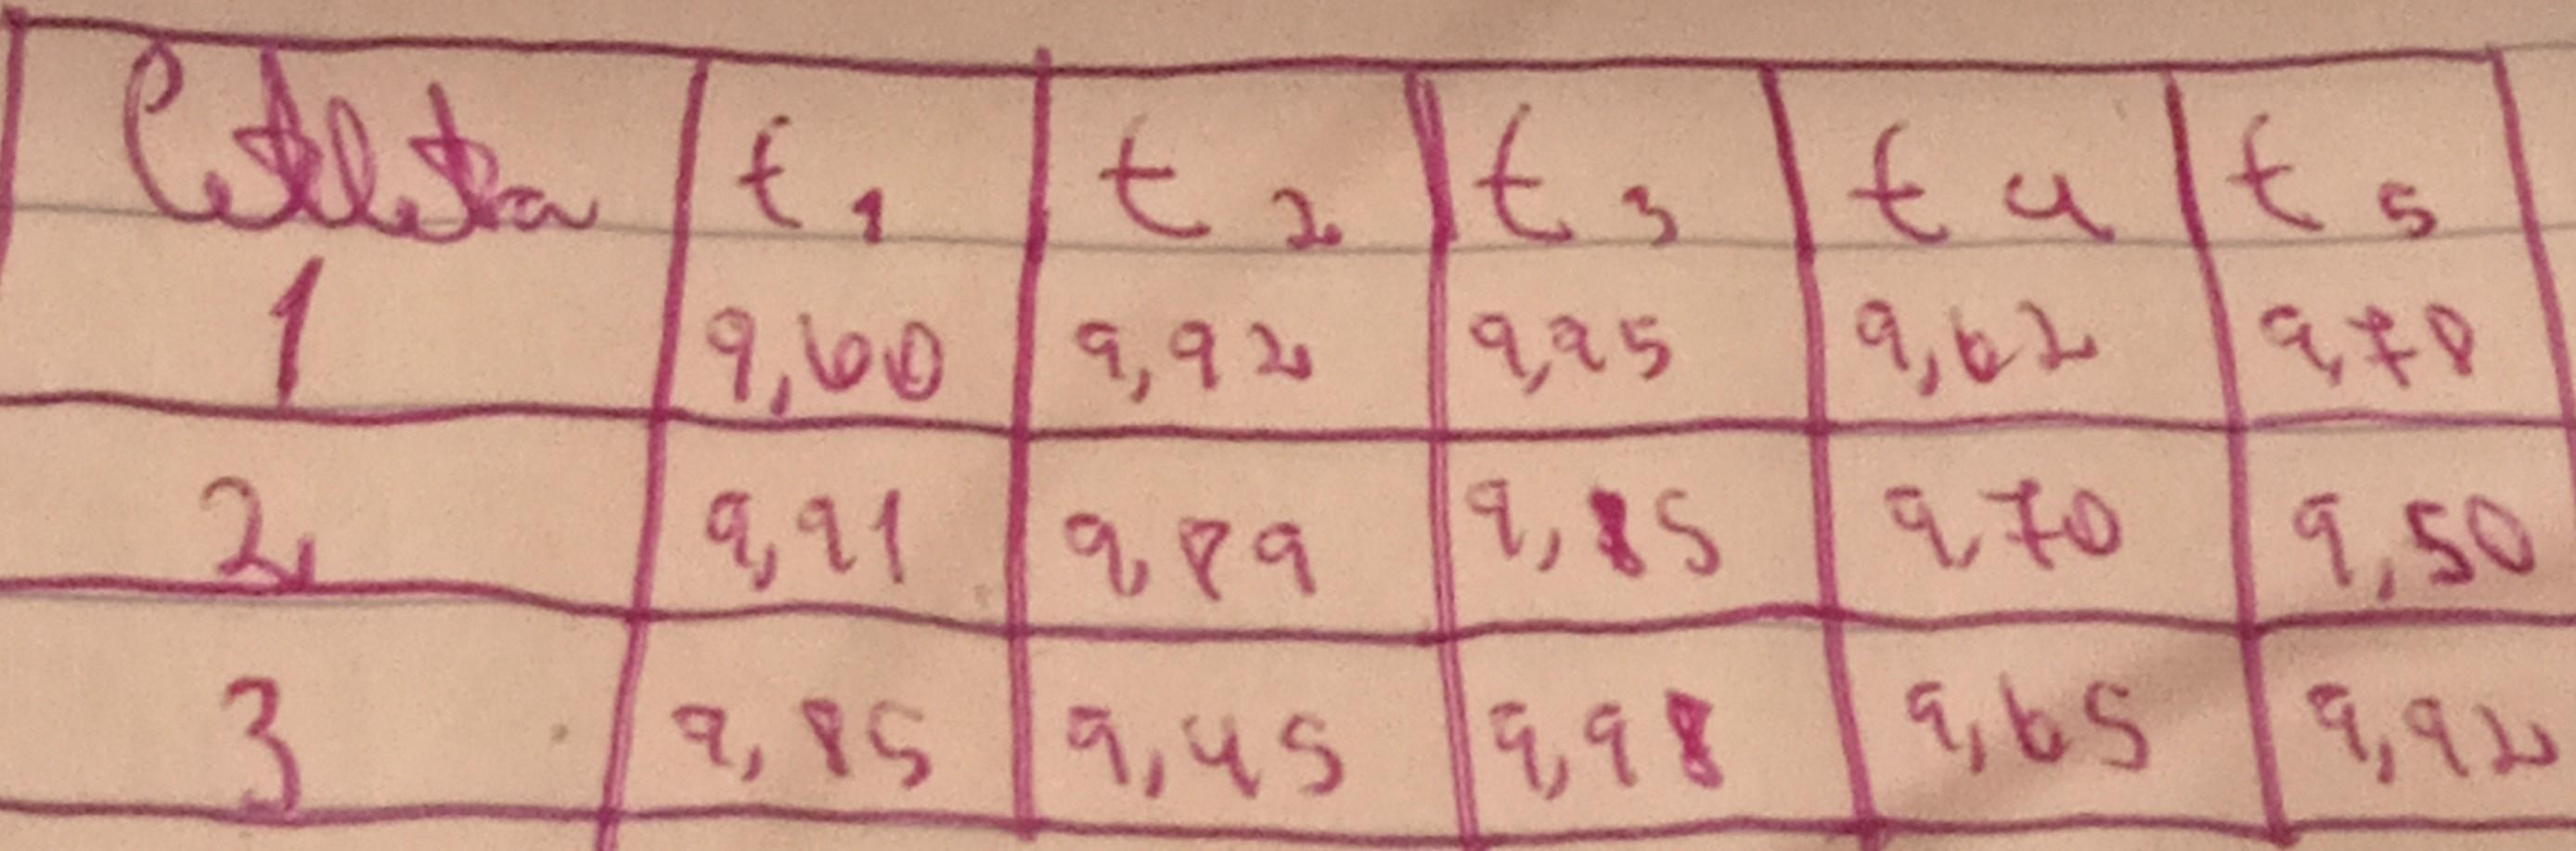 t1 t2 t3 t4 t5
1 9,60 9,92 9,95 9,62 9,78
2 9,91 9,89 9,85 9,70 9,50
3 9,85 9,45 9,98 9,65 9,92